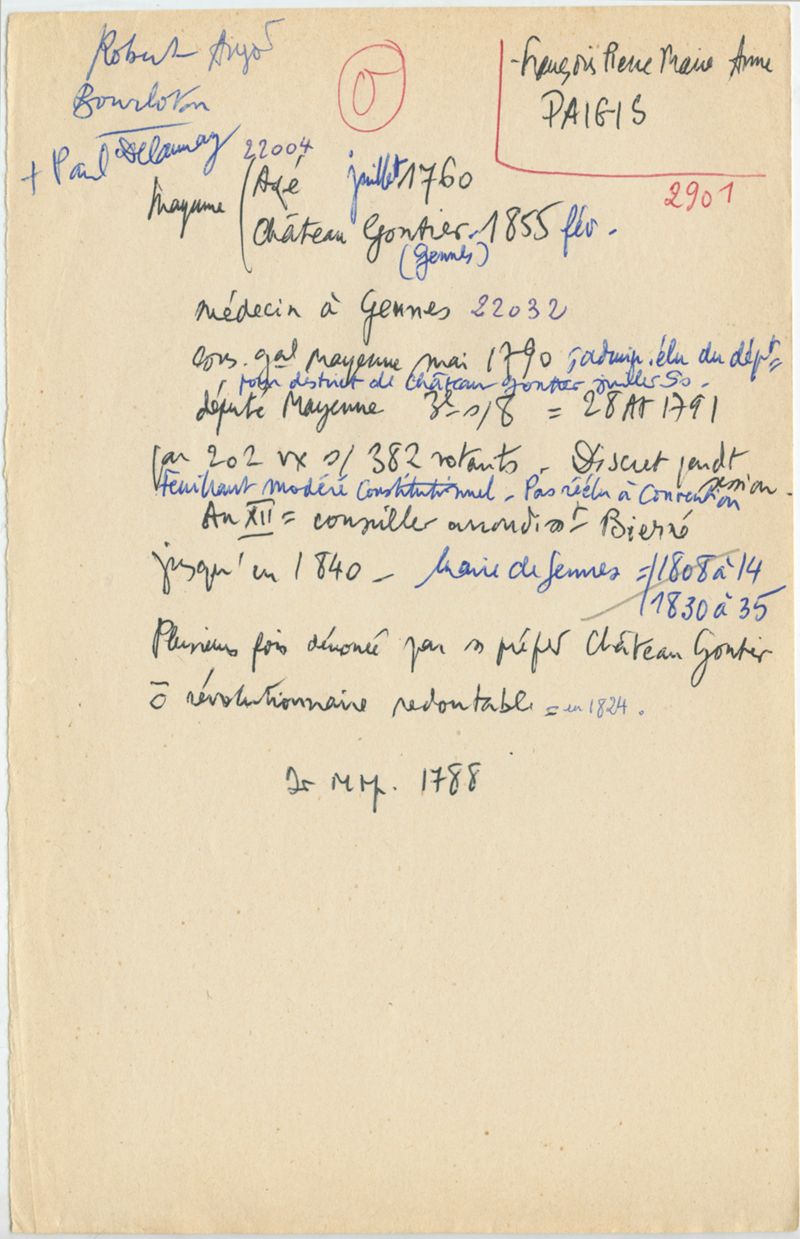 Robert
Bourloton
+ Paul Delaunay
O
François Pierre Marie Anne
PAIGIS
2901
22004
Mayenne
Azé juillet 1760
Château Gontier. 1855 fév.
(Gennes)
médecin à Gennes 22032
cons. gal Mayenne mai 1790 ; admin. élu du dépt =
pour district de Château Gontier juillet 90.
député Mayenne 3e s/8 = 28 At 1791
par 202 vx s/ 382 votants. Discret pendt
session.
Feuillant modéré Constitutionnel. Pas réélu à Convention
An XII = conseiller arrondisst Bierné
jusqu'en 1840 - Maire de Gennes = 1808 à 14
1830 à 35
Plusieurs fois dénoncé par ss préfet Château Gontier
õ révolutionnaire redoutable = en 1824.
1788